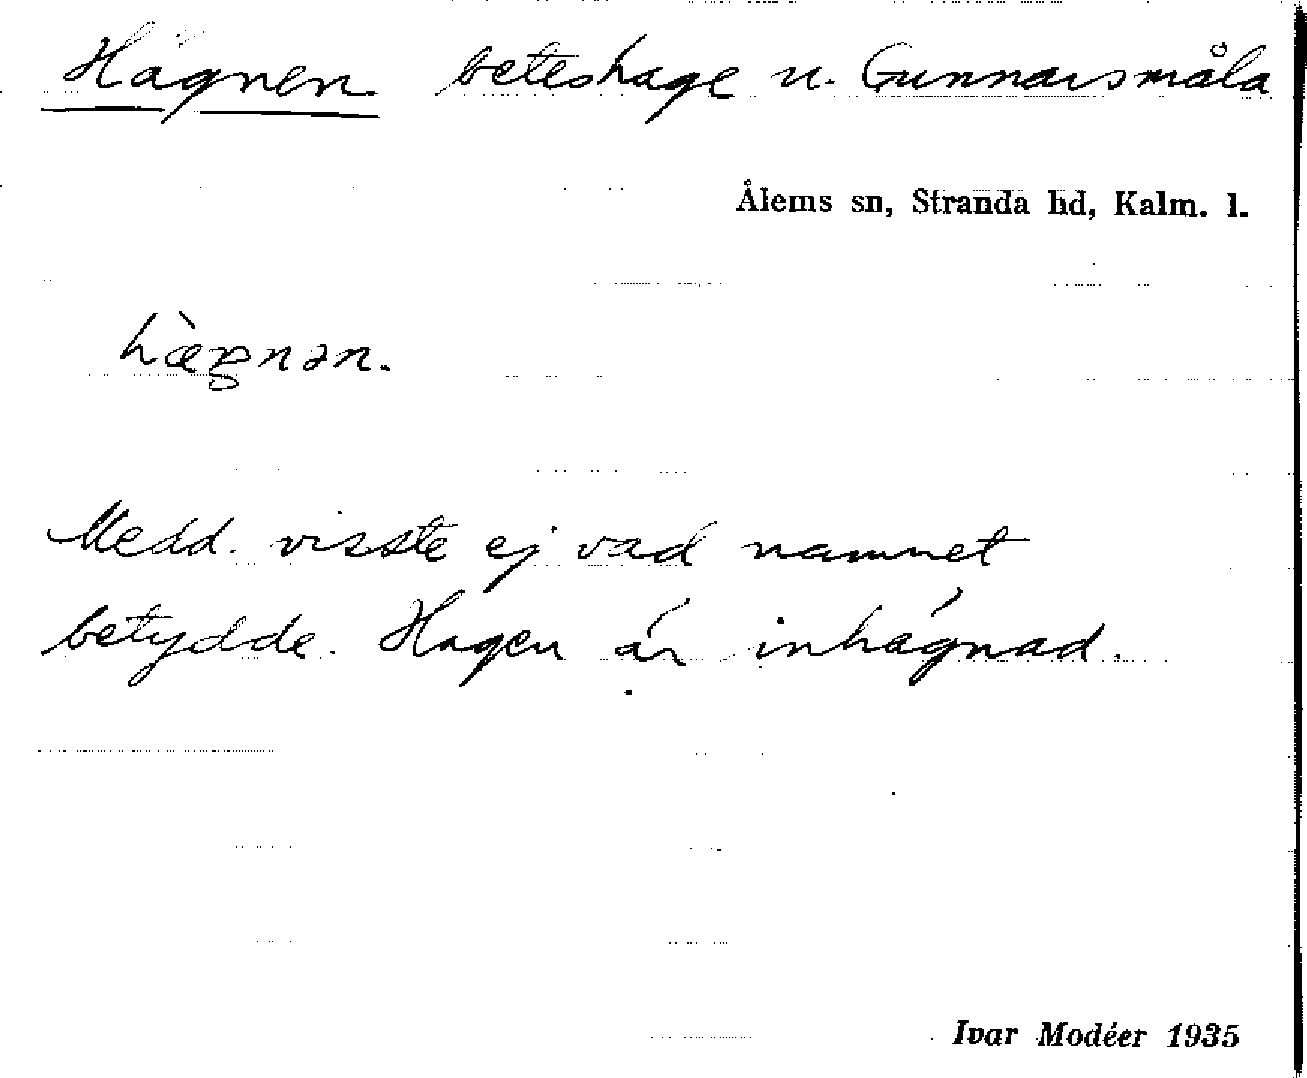 Hägnen beteshage u. Gunnarsmåla
Ålems sn, Stranda hd, Kalm. l.
hæ̀gnən.
Medd. visste ej vad namnet
betydde. Hagen är inhägnad.
Ivar Modéer 1935